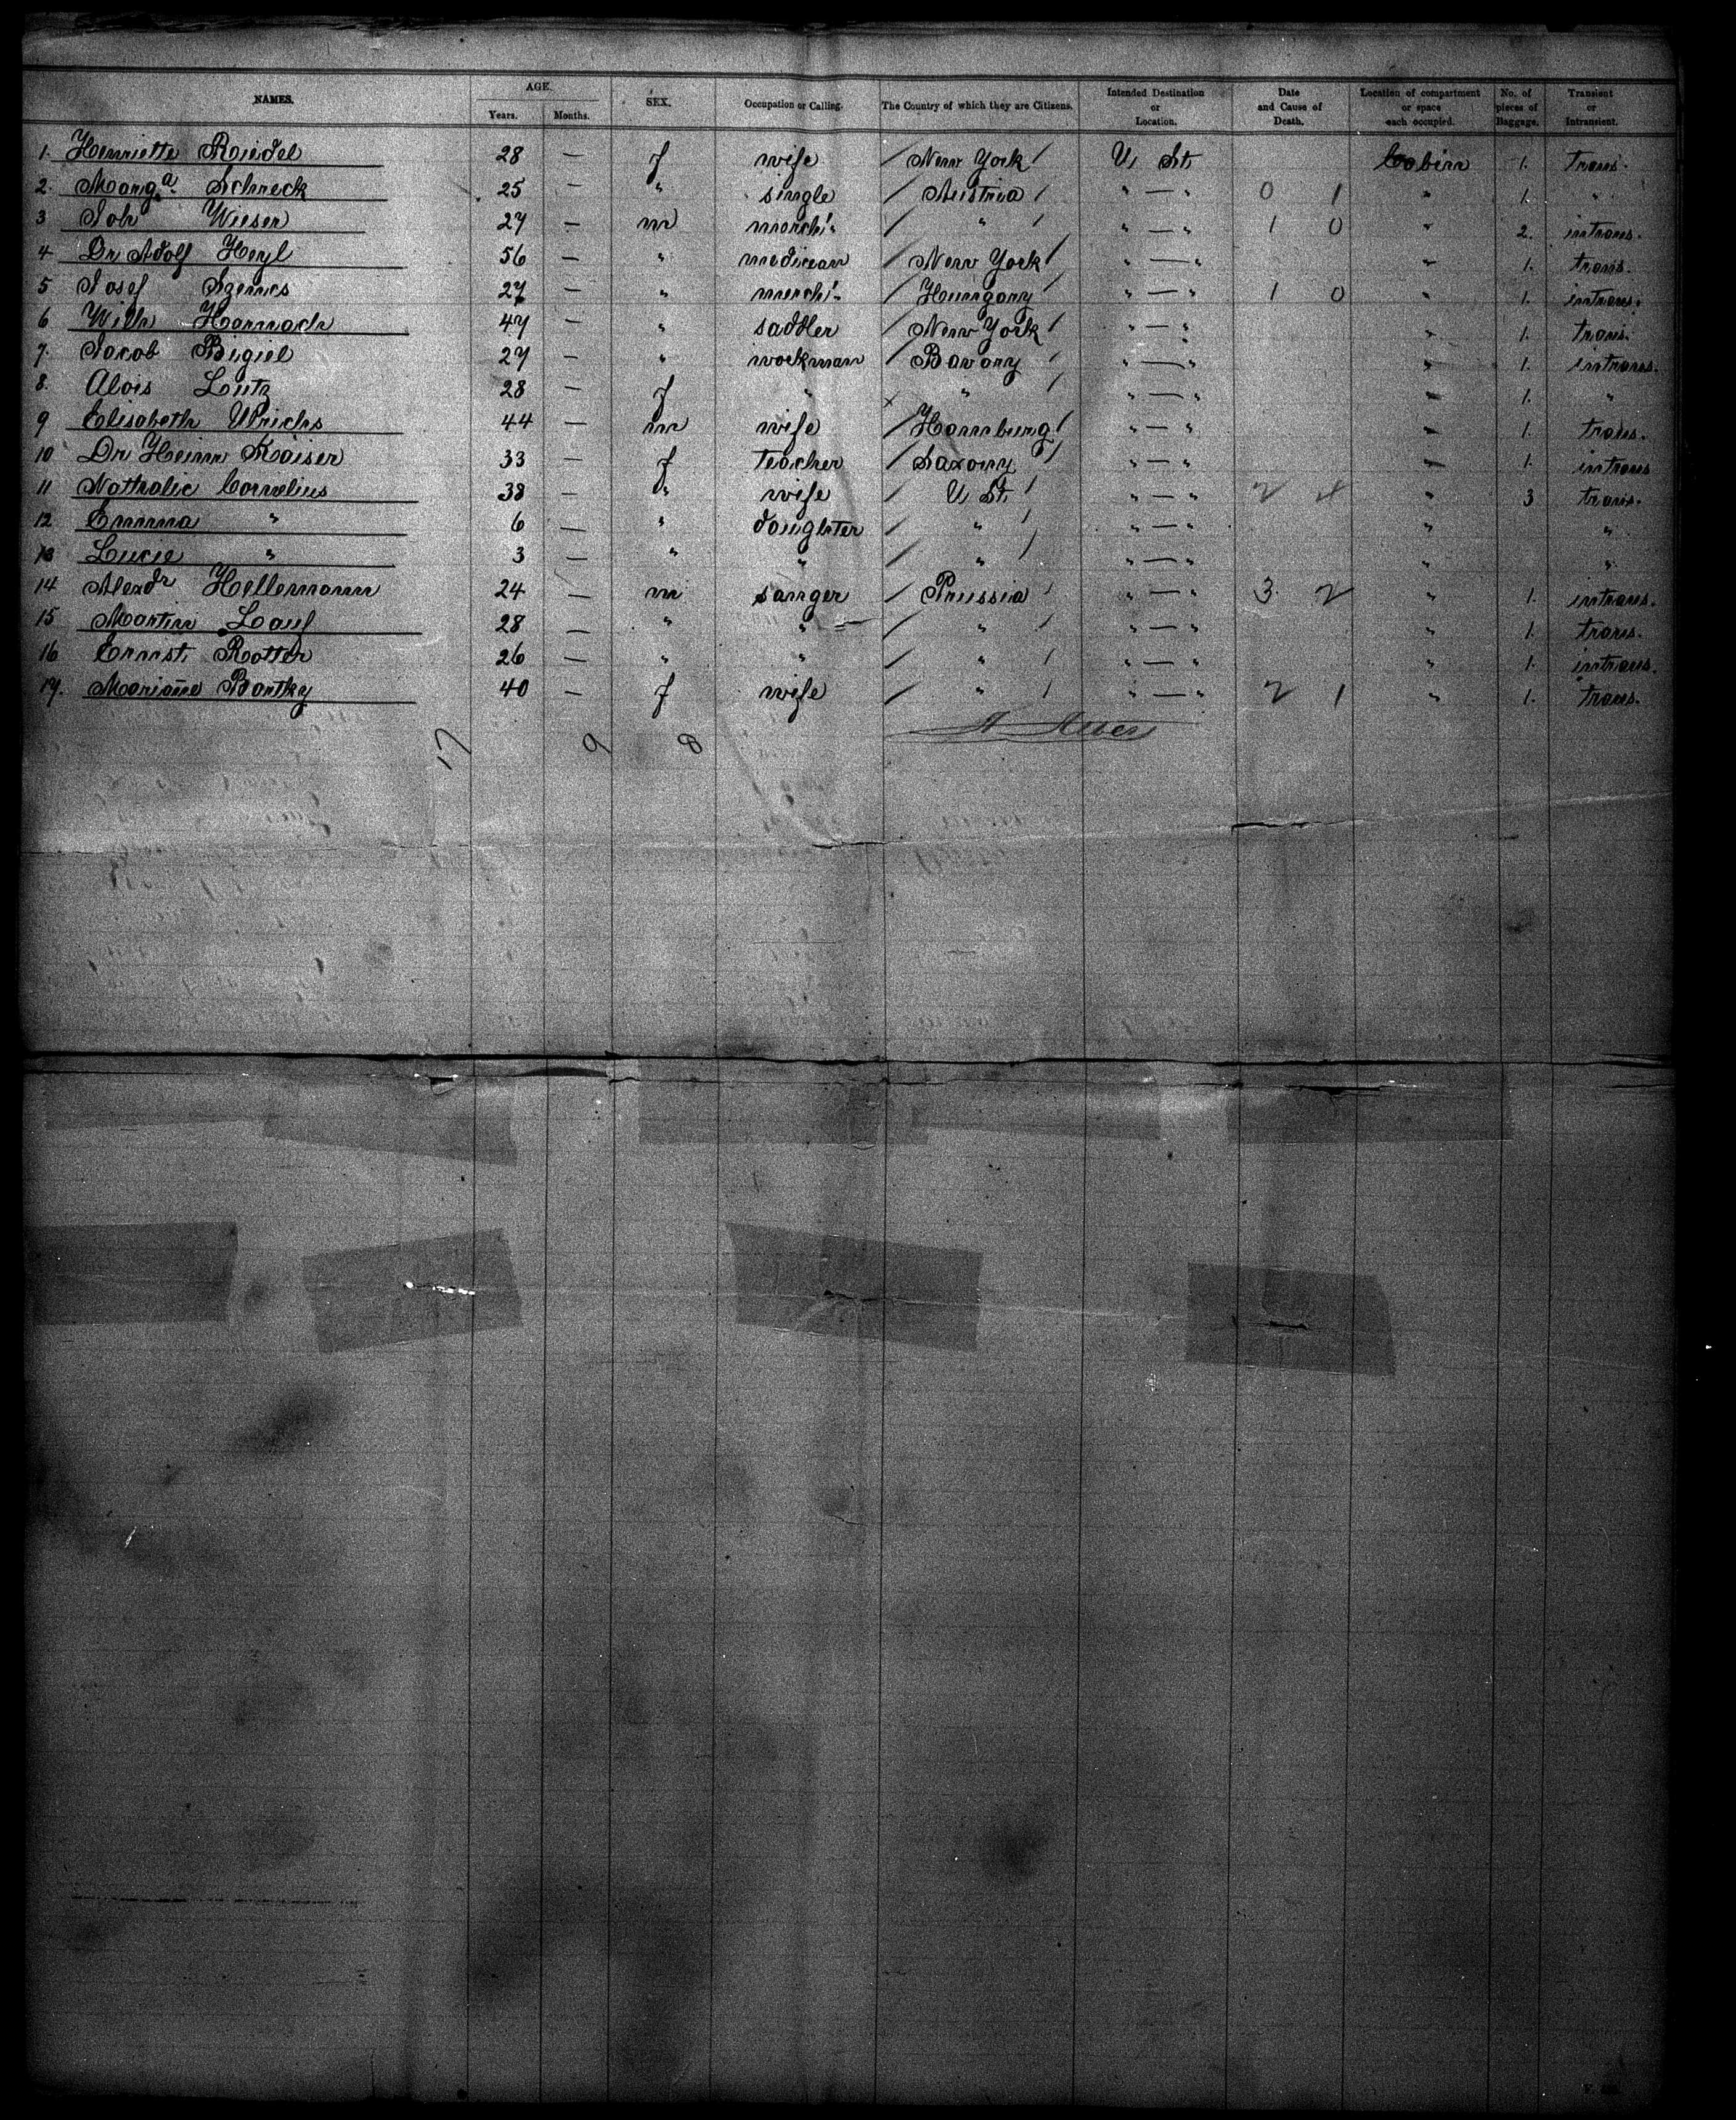 NAMES. AGE. Years. Months. SEX. Occupation or Calling. The Country of which they are Citizens. Intended Destination or Location. Date and Cause of Death. Location of compartment or space each occupied. No. of pieces of Baggage. Transient or Intransient.
1. Henriette Riedel 28 — f wife / New York / U. St. Cabin 1. trans.
2. Marg.a Schreck 25 — " single / Austria / " — " 0 1 " 1. "
3 Joh Wieser 27 — m march! / " / " — " 1 0 " 2. intrans.
4 Dr Adolf Heyl 56 — " medicean / New York / " — " " 1. trans.
5 Josef Szemes 27 — " merch! / Hungary / " — " 1 0 " 1. intrans.
6 Wilh Harnach 47 — " saddler / New York / " — " " 1. trans.
7. Jacob Bigiel 27 — " workman / Bavary / " — " " 1. intrans.
8. Alois Lutz 28 — f " " / " — " " 1. "
9 Elisabeth Ulrichs 44 — m wife / Hamburg / " — " " 1. trans.
10 Dr Heinr Kaiser 33 — f teacher / Saxony / " — " " 1. intrans
11 Nathalie Cornelius 38 — " wife / U St. / " — " 2 " 3 trans.
12 Emma " 6 — " daughter / " / " — " " "
13 Lucie " 3 — " " / " / " — " " "
14 Alexdr Hellermann 24 — m sanger / Prussia / " — " 3. 2 " 1. intrans.
15 Martin Lauf 28 — " " / " / " — " " 1. trans.
16 Ernst Rotter 26 — " " / " / " — " " 1. intrans.
17. Mariane Bartky 40 — f wife / " / " — " 2 1 " 1. trans.
17 9 8